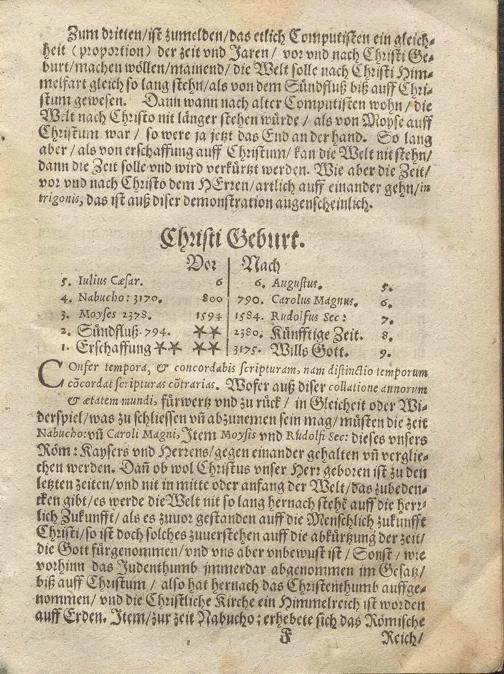 Zum dritten/ist zumelden/das etlich Computisten ein gleich-
heit (proportion) der zeit vnd Jaren/ vor vnd nach Christi Ge-
burt/machen wöllen/mainend/die Welt solle nach Christi Him-
melfart gleich so lang stehn/als von dem Sündfluß biß auff Chri-
stum gewesen. Dann wann nach alter Computisten wohn/die
Welt nach Christo nit länger stehen würde/als von Moyse auff
Christum war/so were ja jetzt das End an der hand. So lang
aber/als von erschaffung auff Christum/kan die Welt nit stehn/
dann die Zeit solle vnd wird verkürtzt werden. Wie aber die Zeit/
vor vnd nach Christo dem HErren/artlich auff einander gehn/in
trigonis, das ist auß diser demonstration augenscheinlich.
Christi Geburt.
Vor | Nach
5. Iulius Cæsar. 6 | 6. Augustus. 5.
4. Nabucho: 3170. 800 | 790. Carolus Magnus. 6.
3. Moyses 2378. 1594 | 1584. Rudolfus Sec: 7.
2. Sündfluß 794. ** | 2380. Künfftige Zeit. 8.
1. Erschaffung ** ** | 3175. Wills Gott. 9.
COnfer tempora, & concordabis scripturam, nam distinctio temporum
cōcordat scripturas cōtrarias. Wofer auß diser collatione annorum
& ætatem mundi, fürwertz vnd zu rück/in Gleicheit oder Wi-
derspiel/was zu schliessen vñ abzunemen sein mag/müsten die zeit
Nabucho: vñ Caroli Magni, Item Moysis vnd Rudolfi Sec: dieses vnsers
Röm: Kaysers vnd Herrens/gegen einander gehalten vñ verglie-
chen werden. Dañ ob wol Christus vnser Herr geboren ist zu den
letzten zeiten/vnd nit in mitte oder anfang der Welt/das zubeden-
cken gibt/es werde die Welt nit so lang hernach stehē auff die herr-
lich Zukunfft/als es zuuor gestanden auff die Menschlich zukunfft
Christi/so ist doch solches zuuerstehen auff die abkürtzung der zeit/
die Gott fürgenommen/vnd vns aber vnbewust ist/Sonst/wie
vorhinn das Judenthumb jmmerdar abgenommen im Gesatz/
biß auff Christum/also hat hernach das Christenthumb auffge-
nommen/vnd die Christliche Kirche ein Himmelreich ist worden
auff Erden. Item/zur zeit Nabucho: erhebete sich das Römische
F Reich/